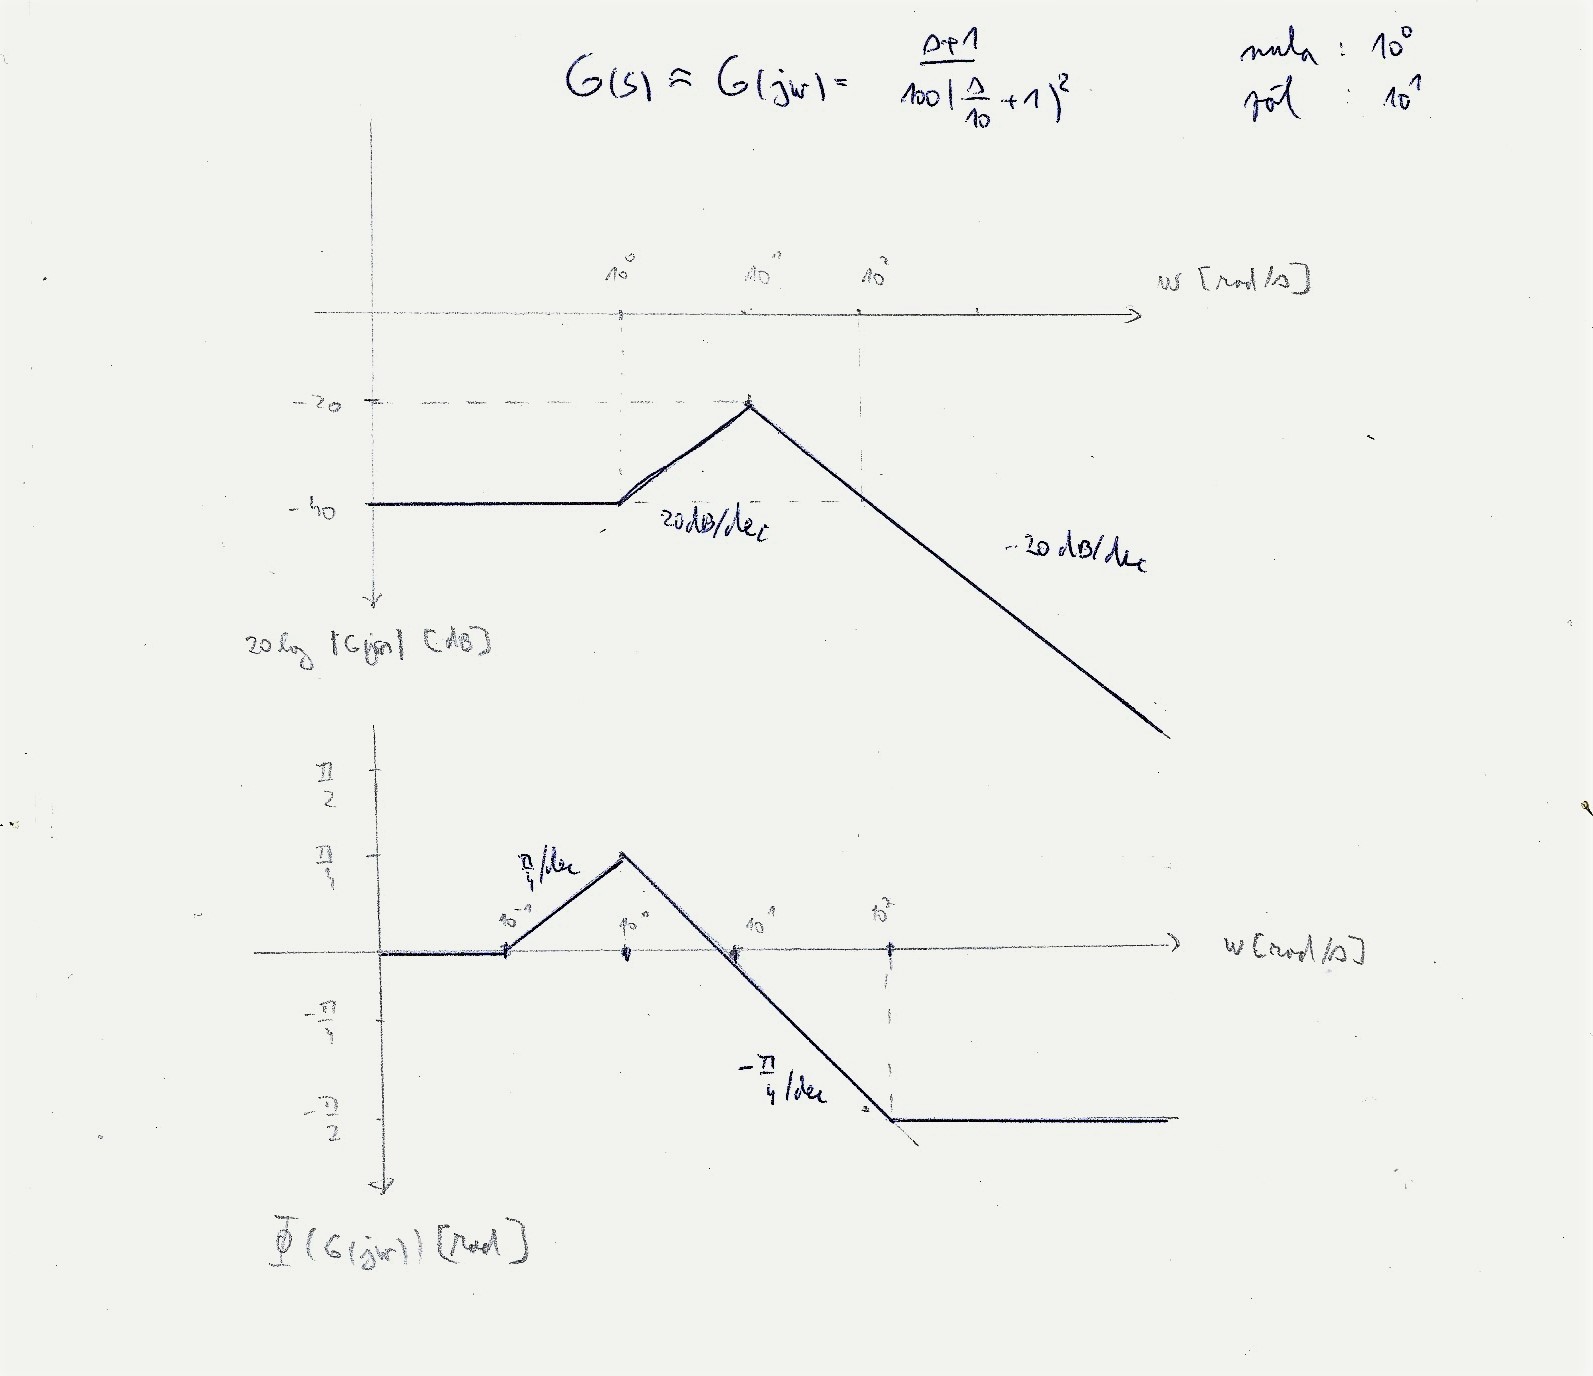 G(s) ≈ G(jw) = s+1 / 100(s/10 + 1)²
nula : 10⁰
pól : 10¹
10⁰ 10¹ 10² w [rad/s]
-20
-40
20dB/dec
-20dB/dec
20 log |G(jw)| [dB]
π/2
π/4
π/4/dec
10⁻¹ 10⁰ 10¹ 10² w [rad/s]
-π/4
-π/4/dec
-π/2
Φ(G(jw)) [rad]